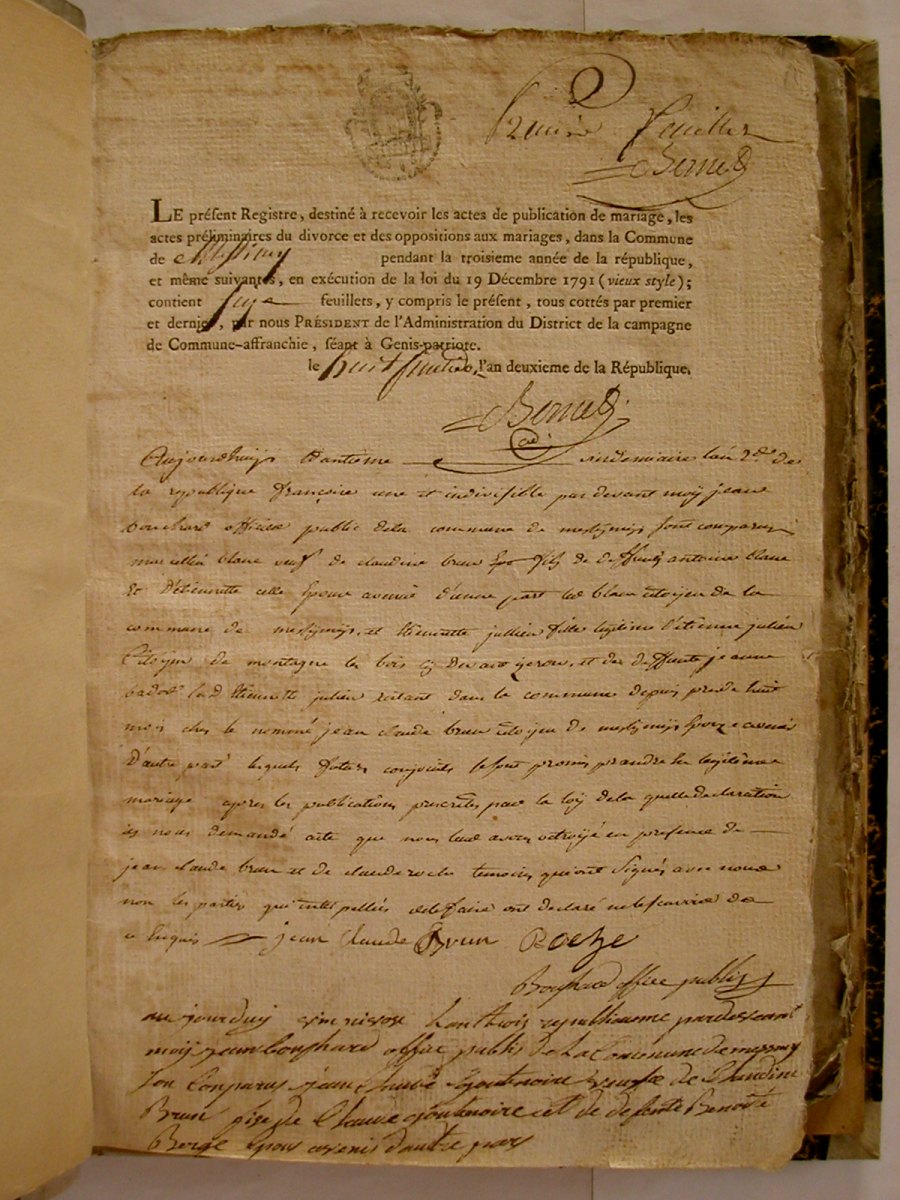 Premier feuillet
Bernet
LE préſent Regiſtre, deſtiné à recevoir les actes de publication de mariage, les
actes préliminaires du divorce et des oppoſitions aux mariages, dans la Commune
de Meſſimy pendant la troiſieme année de la république,
et même ſuivantes, en exécution de la loi du 19 Décembre 1791 (vieux style);
contient feuillets, y compris le préſent, tous cottés par premier
et dernier, par nous PRÉSIDENT de l'Adminiſtration du Diſtrict de la campagne
de Commune-affranchie, ſéant à Genis-patriote.
le huit fructidor, l'an deuxieme de la République.
Bernet
Aujourdhuy vendemiaire lan de
la republique françoise une et indivisible par devant moy jean
bouchard officier public dela commune de sont comparus
blanc veuf de claudine brun fils de deffunt antoine blanc
Et D'étiennette celle Epoux avenir d'une part blanc citoyen de la
commune de et Etiennette jullien fille legitime d'étienne julien
Citoyen de montagne les bois et de deffunte jeanne
Etiennette julien restant dans la commune depuis pres de huit
mois chez le nommé jean claude brun citoyen de Epouse avenir
D'autre part lesquels futurs conjoints se sont promis prandre en legitime
mariage apres les publications prescrites par la loy de la quelle declaration
ils nous demandé acte que nous leur avons octroyé en presence de
jean claude brun et de claude roche temoins qui ont signés avec nous
non les parties qui interpellées de le faire ont declaré ne le scavoir de
ce Enquis jean claude Brun Roche
Bouchard office publis
aujourduy republicaine pardevant
moy jean bouchard office publis de La Comenune de messimy
Son Comparus jean Claude veuf de Claudine
Brun fis de Claude et de defunte Benoite
Berge Epous avenis dautre pars